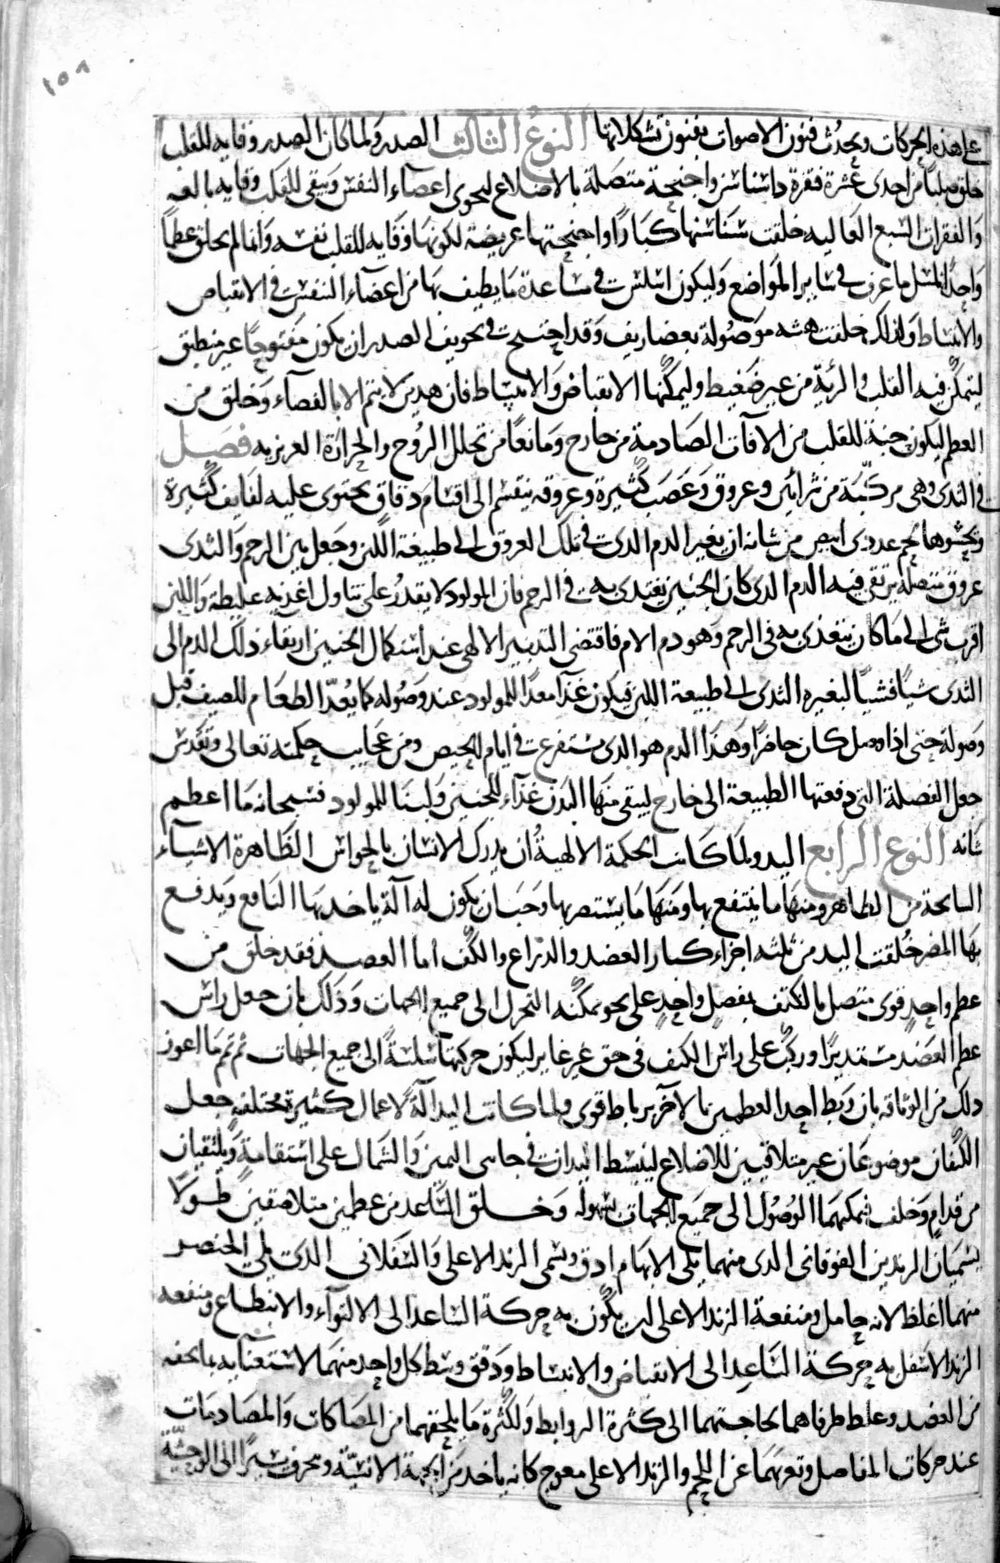 ١٥٨
على هذه الحركات ويحدث فنون الاصوات بفنون تشكلاتها النوع الثالث الصدر ولما كان الصدر وقايه للقلب
خلق صلبا من احدى عشرة فقرة ذات سناسن واجنحة متصلة بالاضلاع ليحوى اعضاء النفس ويبقى للقلب وقايه بالغه
والفقرات السبع العاليه خلقت سناسنها كبارا واجنحتها عريضة لكونها وقايه للقلب نفسه وانما لم يخلق عظما
واحدا لمثل ما عرف فى ساير المواضع وليكون اسلس فى مساعدة ما يطيف بها من اعضاء النفس فى الانقباض
والانبساط ولذلك خلقت هشه موصولة بغضاريف وقد احتيج فى تجويف الصدر ان يكون مفتوحا غير منطبق
ليتمكن فيه القلب والرية من غير ضغيط وليمكنها الانقباض والانبساط فان هذين لا يتم الا بالفضاء وخلق من
العظم ليكون جنة للقلب من الآفات الصادمة من خارج ومانعا من تحلل الروح والحرارة الغريزيه فصل
فى الثدى وهى مركبة من شرايين وعروق وعصب كثيرة وعروقه ينقسم الى اقسام دقاق يحتوى عليه لفايف كثيرة
ويحشوها لحم غددى ابيض من شانه ان يغير الدم الذى فى تلك العروق الى طبيعة اللبن وجعل بين الرحم والثدى
عروق متصلة يرتقى فيه الدم الذى كان الجنين يغتدى به فى الرحم فان المولود لا يقدر على تناول اغذيه غليظة واللبن
اقرب شى الى ما كان يتغذى به فى الرحم وهو دم الام فاقتضى التدبير الالهى عند استكمال الجنين ارتقاء ذلك الدم الى
الثدى شيا فشيا ليغيره الثدى الى طبيعة اللبن فيكون غذآ معدا للمولود عند وصوله كما يعد الطعام للضيف قبل
وصوله حتى اذا وصل كان حاضرا وهذا الدم هو الذى يستفرغ فى ايام الحيض ومن عجايب حكمته تعالى وتقدس
جعل الفضلة التى دفعتها الطبيعة الى خارج ليبقى منها البدن غذآء للجنين ولبنا للمولود فسبحانه ما اعظم
شانه النوع الرابع اليد ولما كانت الحكمة الالهية ان يدرك الانسان بالحواس الظاهرة الاشياء
السانحة من الظاهر ومنها ما ينتفع بها ومنها ما يستضر بها وجب ان يكون له آلة ياخذ بها النافع ويدفع
بها المضر خلقت اليد من ثلثه اجزاء كبار العضد والذراع والكف اما العضد فقد خلق من
عظم واحد قوى متصل بالكتف بمفصل واحد على نحو يمكنه التحرك الى جميع الجهات وذلك بان جعل راس
عظم العضد مستديرا وركب على راس الكتف فى حق غير غاير ليكون حركتها سلسة الى جميع الجهات ثم تمم ما اعوز
ذلك من الوثاقه بان ربط احد العظمين بالآخر برباط قوى ولما كانت اليد آلة لاعمال كثيرة مختلفه جعل
الكتفان موضوعان غير متلاقيين للاضلاع لينبسط اليدان فى جانبى اليمين والشمال على استقامة ويلتقيان
من قدام وخلف فيمكنهما الوصول الى جميع الجهات بسهوله وخلق الساعد من عظمين متلاصقين طولا
يسميان الزندين الفوقانى الذى منهما يلى الابهام ادق ويسمى الزند الاعلى والسفلانى الذى يلى الخنصر
منهما اغلظ لانه حامل ومنفعة الزند الاعلى ان يكون به حركة الساعد الى الالتوآء والانبطاح ومنفعه
الزند الاسفل به حركة الساعد الى الانقباض والانبساط ودقق وسط كل واحد منهما لاستغنآيه بما يحفه
من العضد وغلظ طرفاهما لحاجتهما الى كثرة الروابط ولكثرة ما يلحقهما من المصاكات والمصادمات
عند حركات المفاصل وتعريهما عن اللحم والزند الاعلى معوج كانه ياخذ من الجهة الانسيّة ويحرف يسيرا الى الوحشيّة